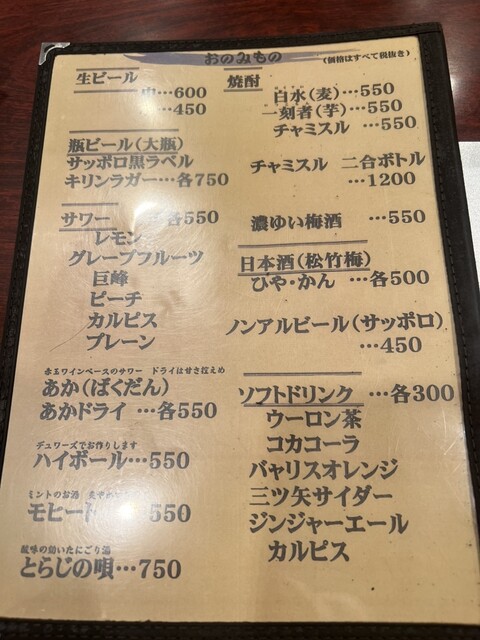 おのみもの
(価格はすべて税抜き)
生ビール
中…600
…450
瓶ビール(大瓶)
サッポロ黒ラベル
キリンラガー…各750
サワー 各550
レモン
グレープフルーツ
巨峰
ピーチ
カルピス
プレーン
赤玉ワインベースのサワー ドライは甘さ控えめ
あか(ばくだん)
あかドライ …各550
デュワーズでお作りします
ハイボール…550
ミントのお酒
モヒート 550
酸味の効いたにごり酒
とらじの唄…750
焼酎
白水(麦)…550
一刻者(芋)…550
チャミスル …550
チャミスル 二合ボトル
…1200
濃ゆい梅酒 …550
日本酒(松竹梅)
ひや・かん …各500
ノンアルビール(サッポロ)
…450
ソフトドリンク …各300
ウーロン茶
コカコーラ
バヤリスオレンジ
三ツ矢サイダー
ジンジャーエール
カルピス